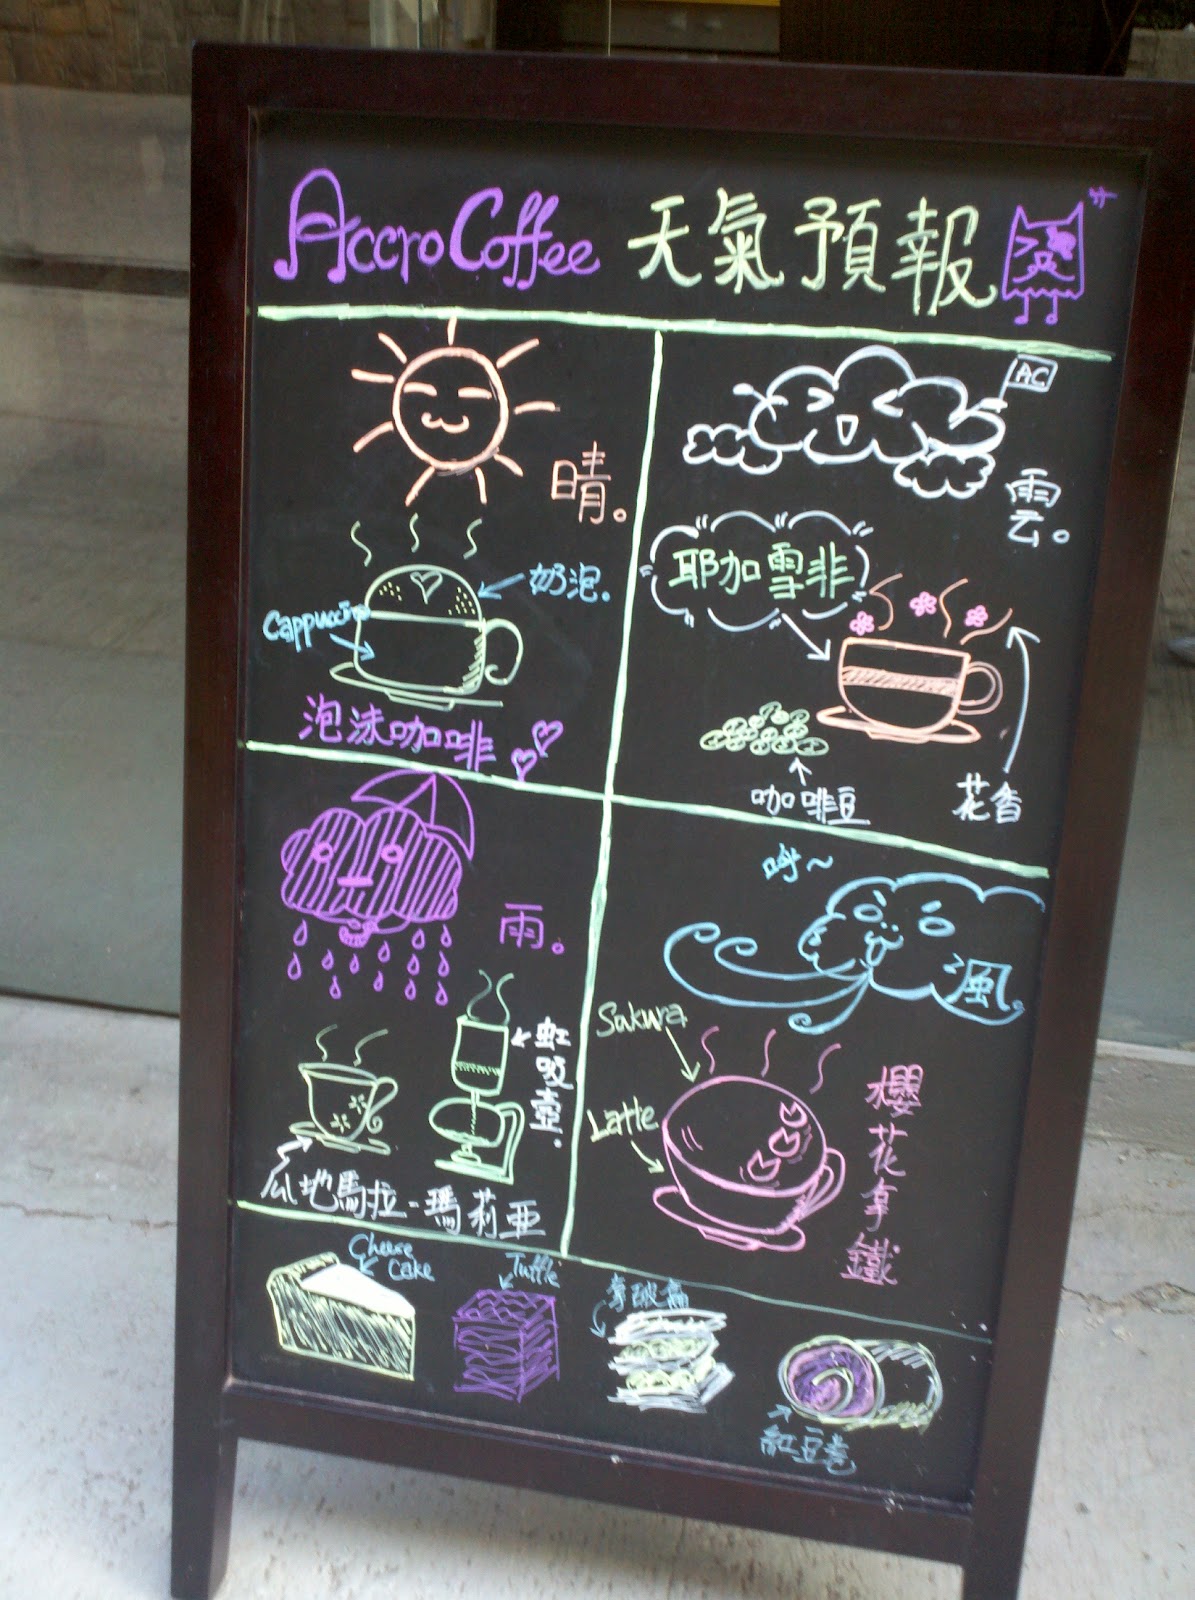 Accro Coffee 天氣預報
晴。
奶泡。
Cappuccino
泡沫咖啡
AC
雲。
耶加雪菲
咖啡豆
花香
雨。
虹吸壺.
瓜地馬拉-瑪莉亞
呼~
風。
Sakura
Latte
櫻花拿鐵
Cheese
Cake
Tuffle
紅豆卷